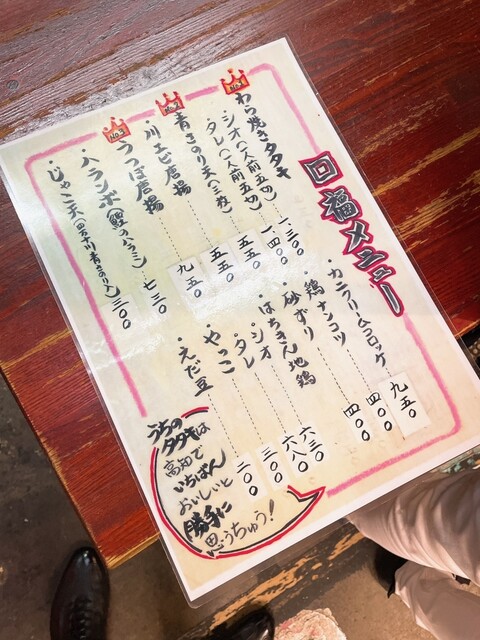 口福メニュー
No.1
わら焼きタタキ
・シオ(一人前五切) 一三〇〇
・タレ(一人前五切) 一四〇〇
No.2
青さのり天(三枚) 五五〇
・川エビ唐揚 五五〇
No.3
うつぼ唐揚 九五〇
・ハランボ(鰹のハラミ) 七三〇
・じゃこ天(四万十川青さのり入) 三〇〇
・カニクリームコロッケ 九五〇
・鶏ナンコツ 四〇〇
・砂ずり 四〇〇
・はちきん地鶏
・シオ 六三〇
・タレ 六八〇
・やっこ 三〇〇
・えだ豆 二〇〇
うちの
タタキは
高知で
いちばん
おいしいと
勝手に
思うちゅう!